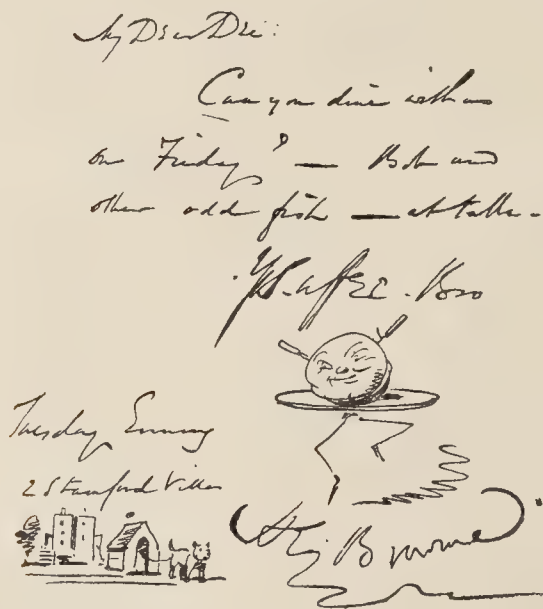 My Dear Dee:
Can you dine with us
on Friday? — Bob and
other odd fish — at table.
Yrs. affec. Bro
Tuesday Evening
2 Stamford Villas
Browne